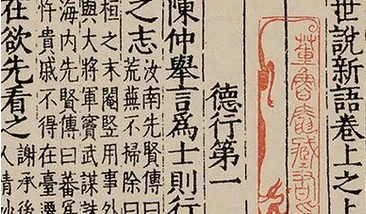 世說新語卷上之上
德行第一
陳仲舉言為士則行
之志
汝南先賢傳曰
荒蕪不掃除曰
桓之末閹豎用事外
與大將軍竇武謀誅
海內先賢傳曰蕃
忤貴戚不得在臺遷
在欲先看之
謝承後